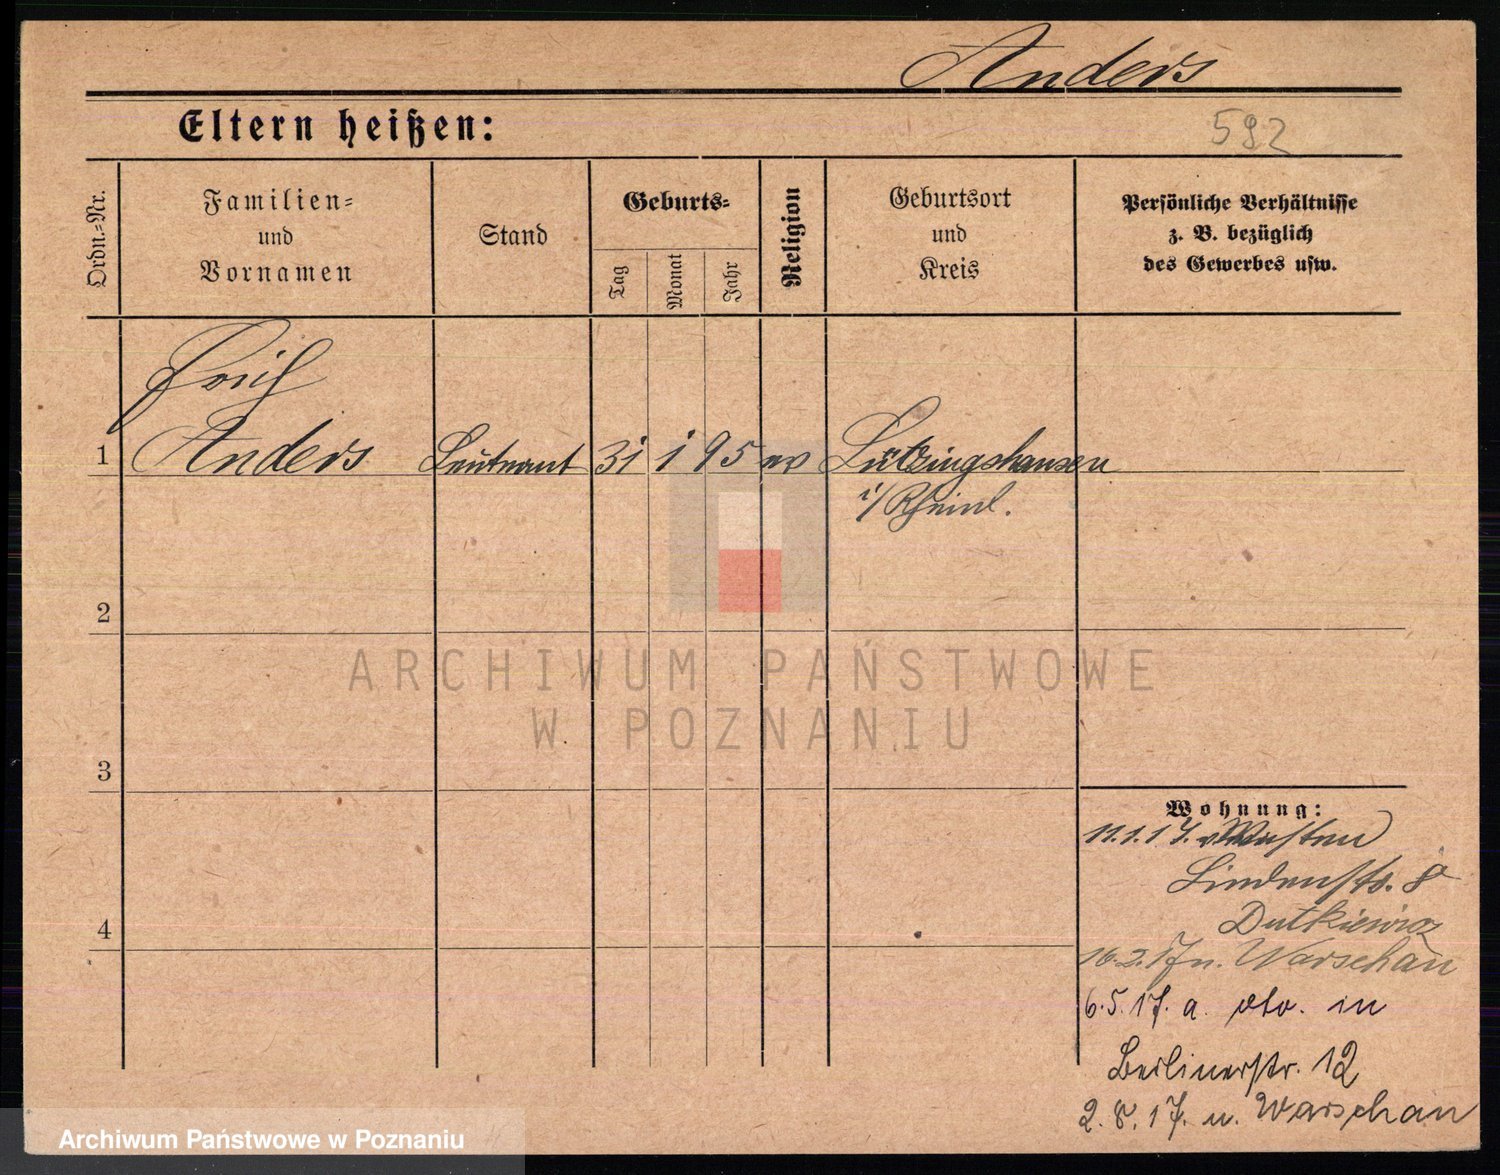 Anders
Eltern heißen:
592
Ordn.-Nr.
Familien-
und
Vornamen
Stand
Geburts-
Tag
Monat
Jahr
Religion
Geburtsort
und
Kreis
Persönliche Verhältnisse
z. B. bezüglich
des Gewerbes usw.
1
Anders
Leutnant
31
1
95
ev
Lützingshausen
i/Rheinl.
2
3
4
Wohnung:
11.1.17. v. Westen
Lindenstr. 8
Dutkiewicz
16.2.17 n. Warschau
6.5.17. a. dto. in
Berlinerstr. 12
2.8.17. n. Warschau
ARCHIWUM PAŃSTWOWE
W POZNANIU
Archiwum Państwowe w Poznaniu